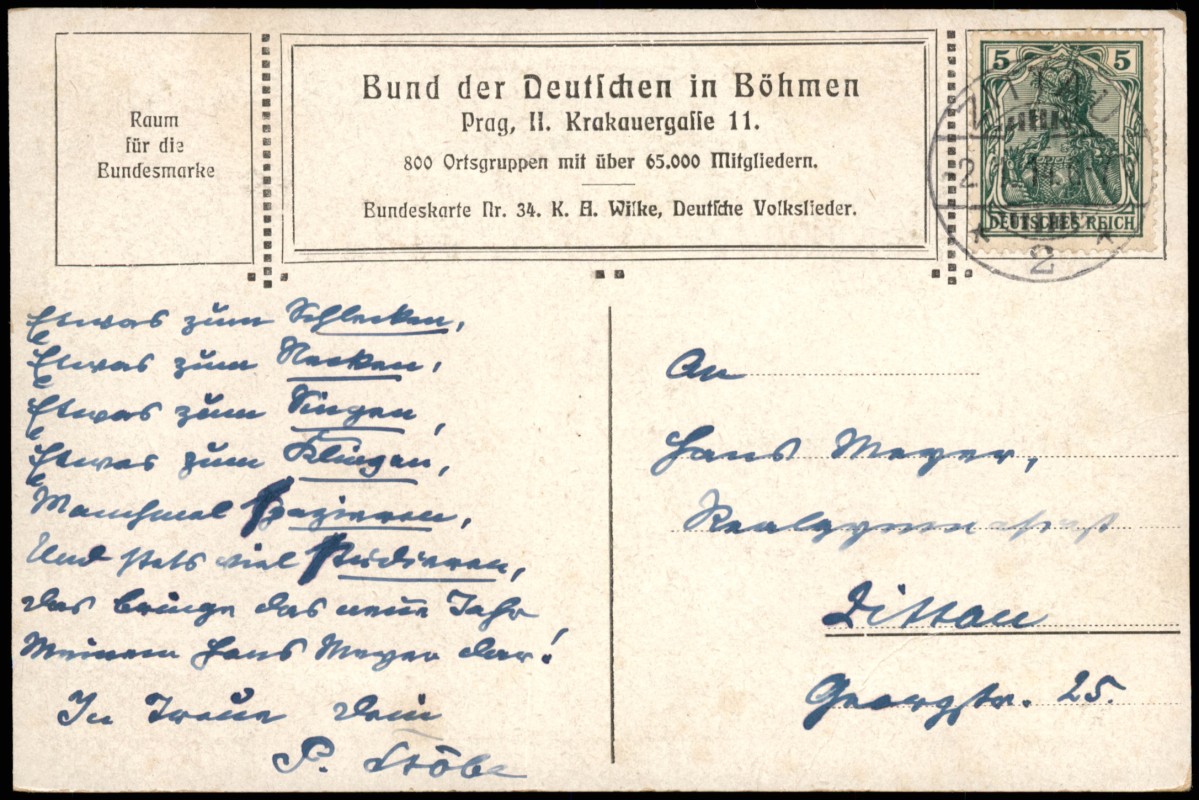 Raum
für die
Bundesmarke
Bund der Deutschen in Böhmen
Prag, II. Krakauergasse 11.
800 Ortsgruppen mit über 65.000 Mitgliedern.
Bundeskarte Nr. 34. K. A. Wilke, Deutsche Volkslieder.
5 5
DEUTSCHES REICH
ZITTAU
2
Etwas zum Schlecken,
Etwas zum Necken,
Etwas zum Singen,
Etwas zum Klingen,
Manchmal spazieren,
Und stets viel studieren,
Das bringe das neue Jahr
Meinem Hans Meyer dar!
In Treue dein
P.
An
Hans Meyer,
Realgymnasiast
Zittau
Georgstr. 25.